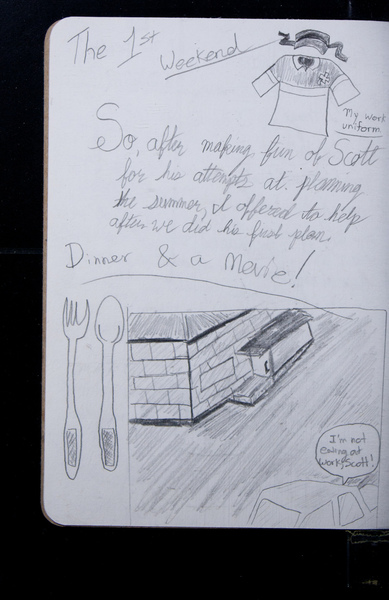 The 1st Weekend
My work
uniform.
So, after making fun of Scott
for his attempts at planning
the summer, I offered to help
after we did his first plan.
Dinner & a Movie!
I'm not
eating at
work, Scott!